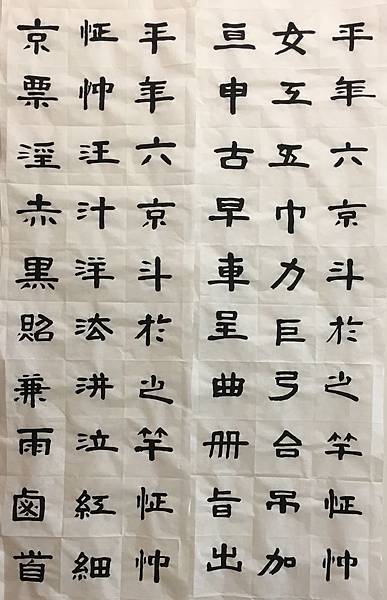 平年六京斗於之竿怔忡
女工五巾力巨弓合吊加
亘申古早車呈曲冊旨出
平年六京斗於之竿怔忡
怔忡汪汁洋法汫泣紅細
京票淫赤黑貽兼雨鹵首